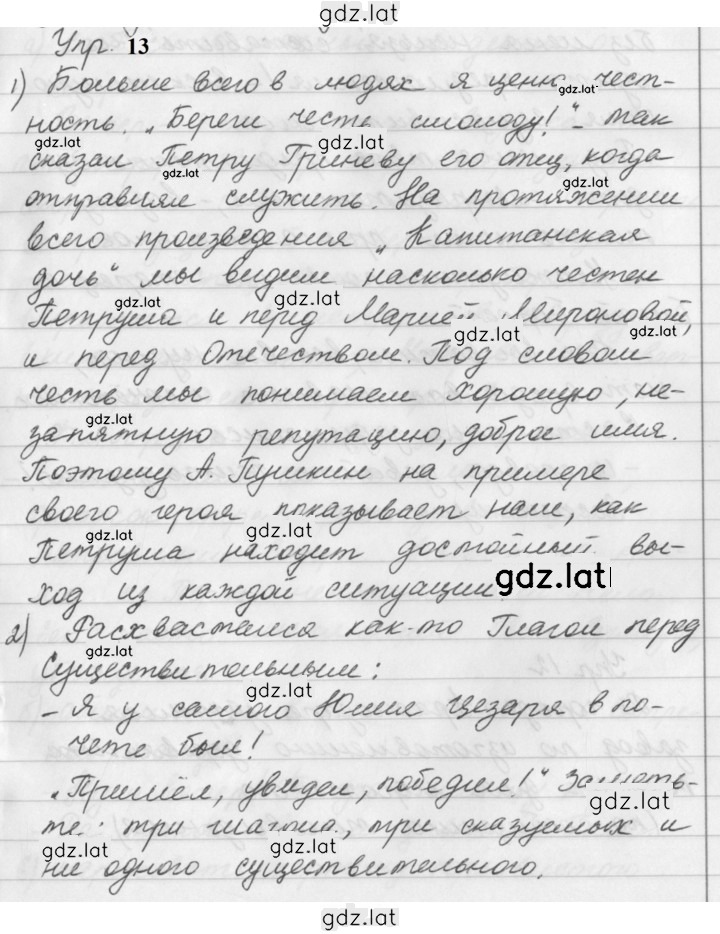 gdz.lat
Упр. 13
1) Больше всего в людях я ценю чест-
gdz.lat
ность. „Береги честь смолоду!“ – так
gdz.lat gdz.lat
сказал Петру Гриневу его отец, когда
gdz.lat gdz.lat
отправлял служить. На протяжении
всего произведения „Капитанская
дочь“ мы видим насколько честен
gdz.lat gdz.lat
Петруша и перед Марией Мироновой,
gdz.lat gdz.lat
и перед Отечеством. Под словом
честь мы понимаем хорошую, не-
gdz.lat
запятнную репутацию, доброе имя.
Поэтому А. Пушкин на примере
своего героя показывает нам, как
gdz.lat gdz.lat
Петруша находит достойный вы-
ход из каждой ситуации.
gdz.lat
2) Расхвастался как-то Глагол перед
gdz.lat
Существительным:
gdz.lat
– Я у самого Юлия Цезаря в по-
чете был!
„Пришёл, увидел, победил!“ Заметь-
gdz.lat
те: три глагола, три сказуемых и
gdz.lat gdz.lat
ни одного существительного.
gdz.lat